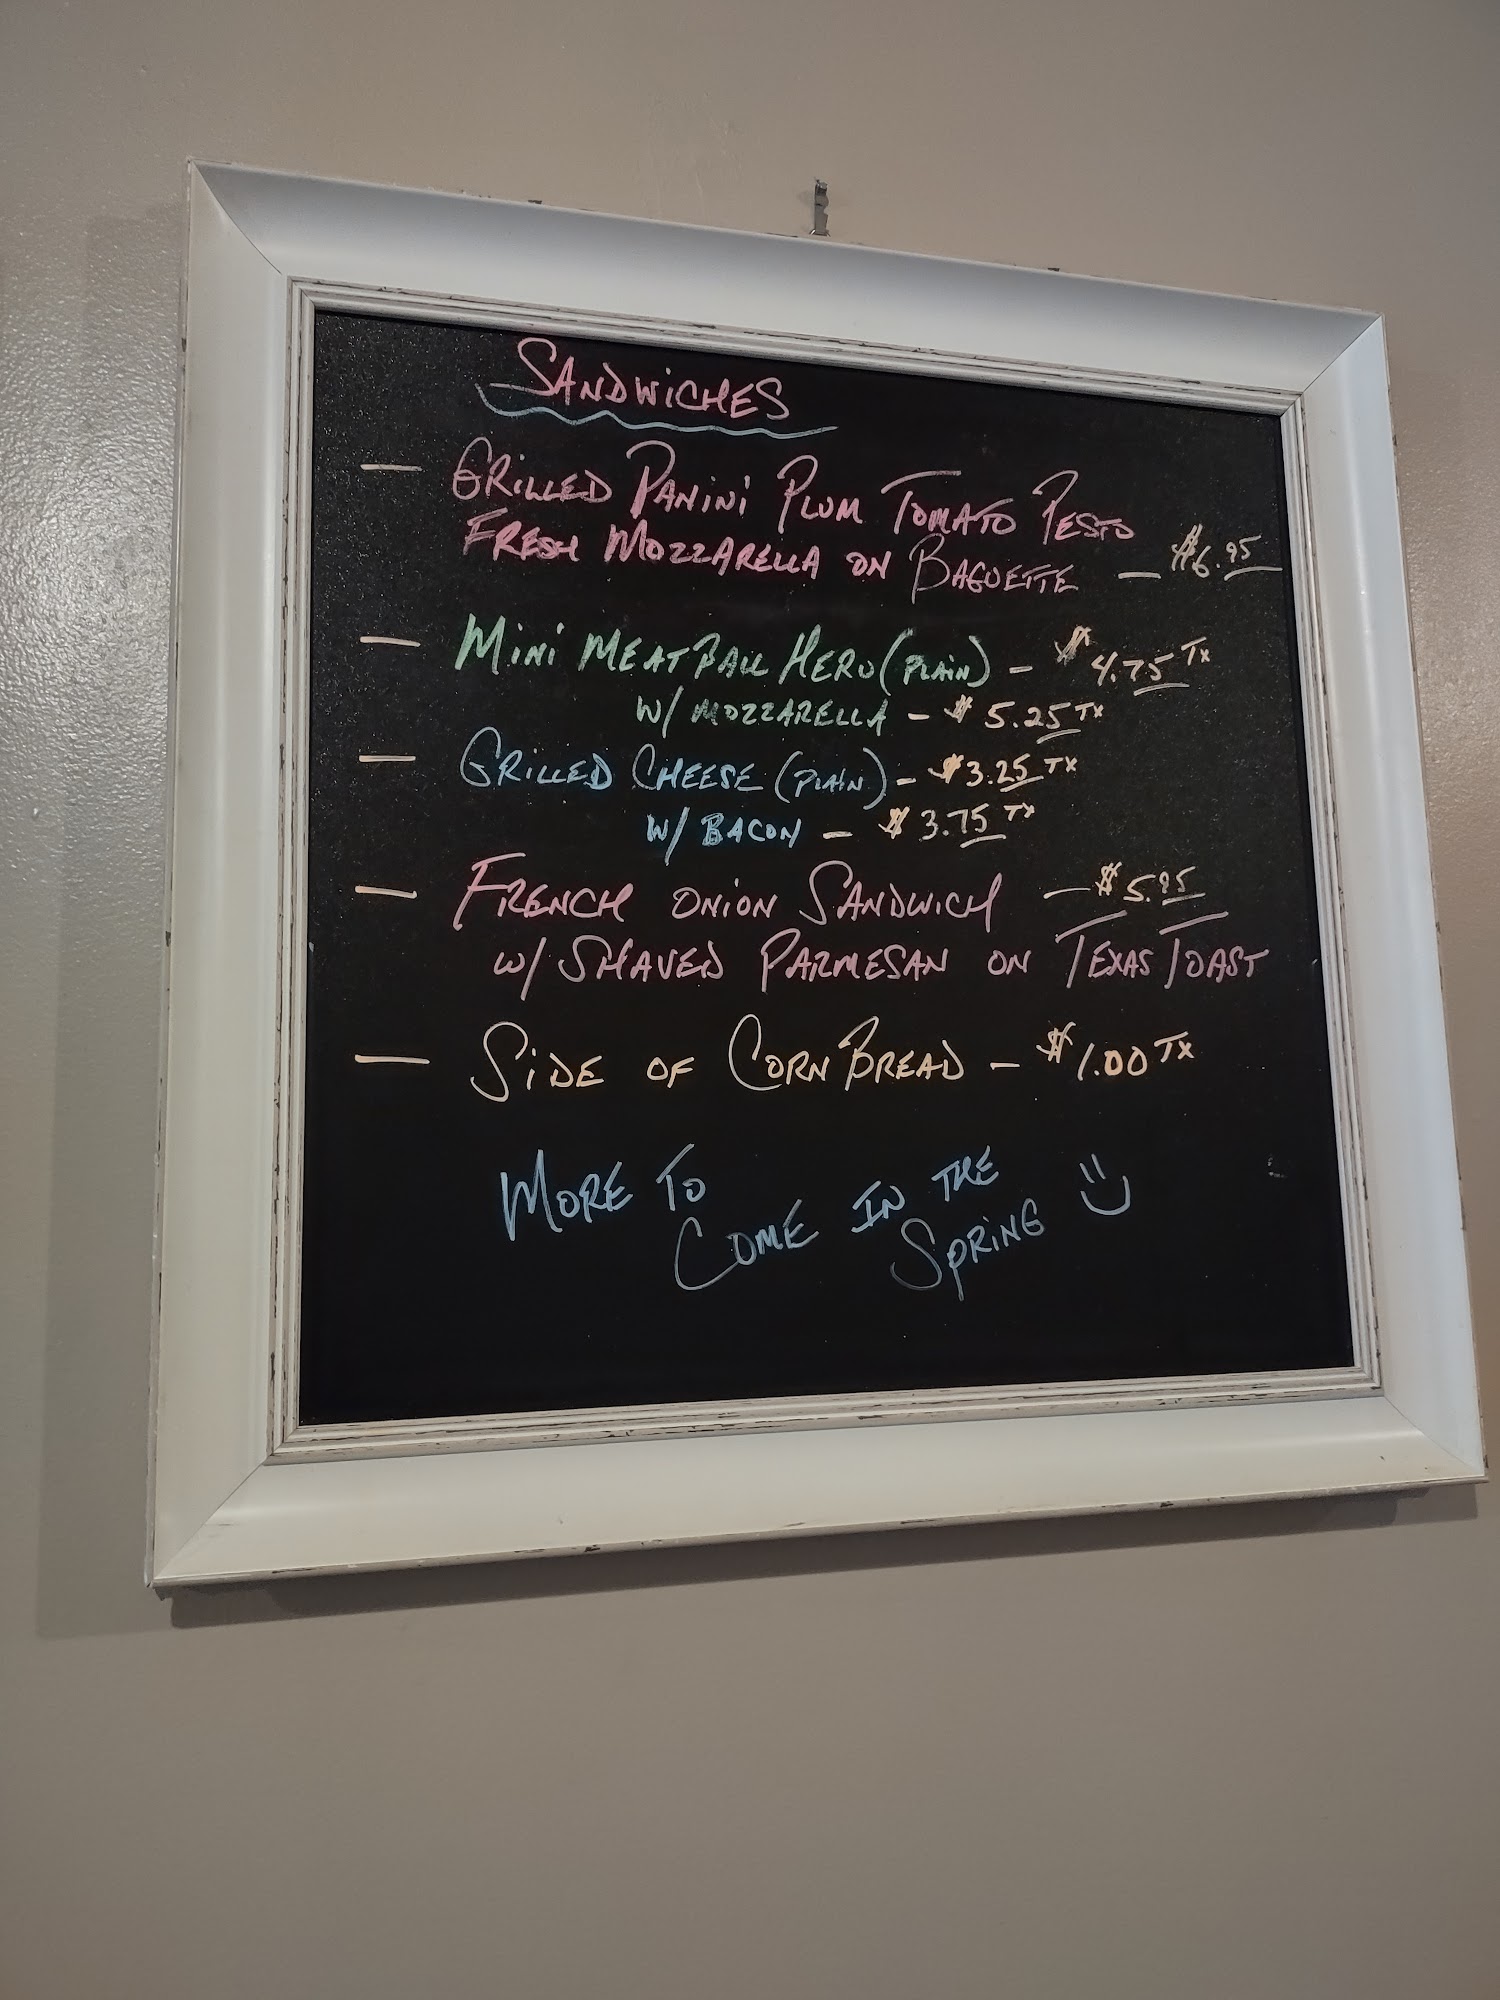 SANDWICHES
— GRILLED PANINI PLUM TOMATO PESTO
FRESH MOZZARELLA ON BAGUETTE — $6.95
— MINI MEATBALL HERO (PLAIN) – $4.75 TX
W/ MOZZARELLA – $5.25 TX
— GRILLED CHEESE (PLAIN) – $3.25 TX
W/ BACON – $3.75 TX
— FRENCH ONION SANDWICH — $5.95
W/ SHAVED PARMESAN ON TEXAS TOAST
— SIDE OF CORN BREAD – $1.00 TX
MORE TO
COME IN THE
SPRING